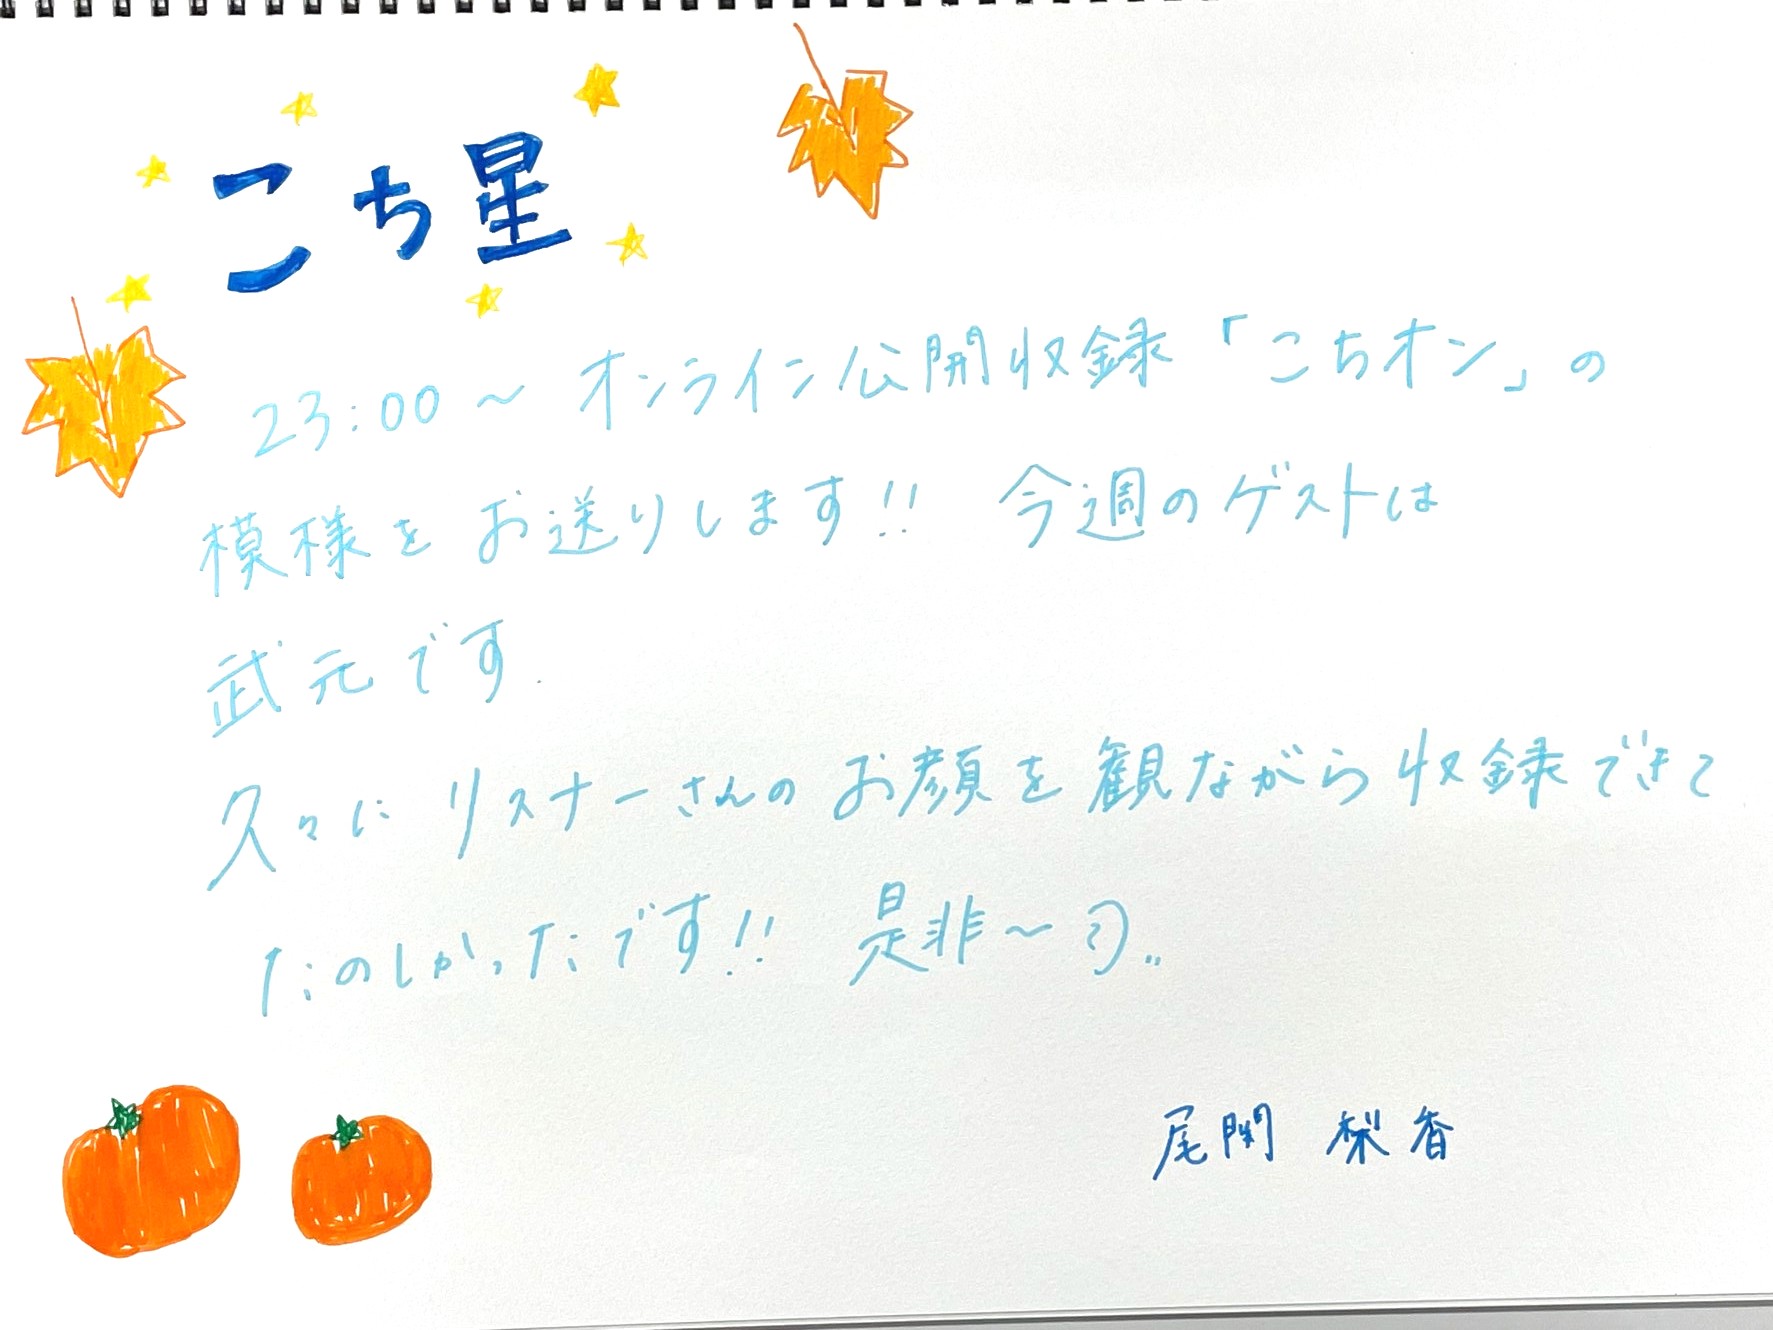 こち星
23:00〜 オンライン公開収録「こちオン」の
模様をお送りします!! 今週のゲストは
武元です.
久々に リスナーさんの お顔を 観ながら 収録できて
たのしかったです!! 是非〜
尾関 梨香